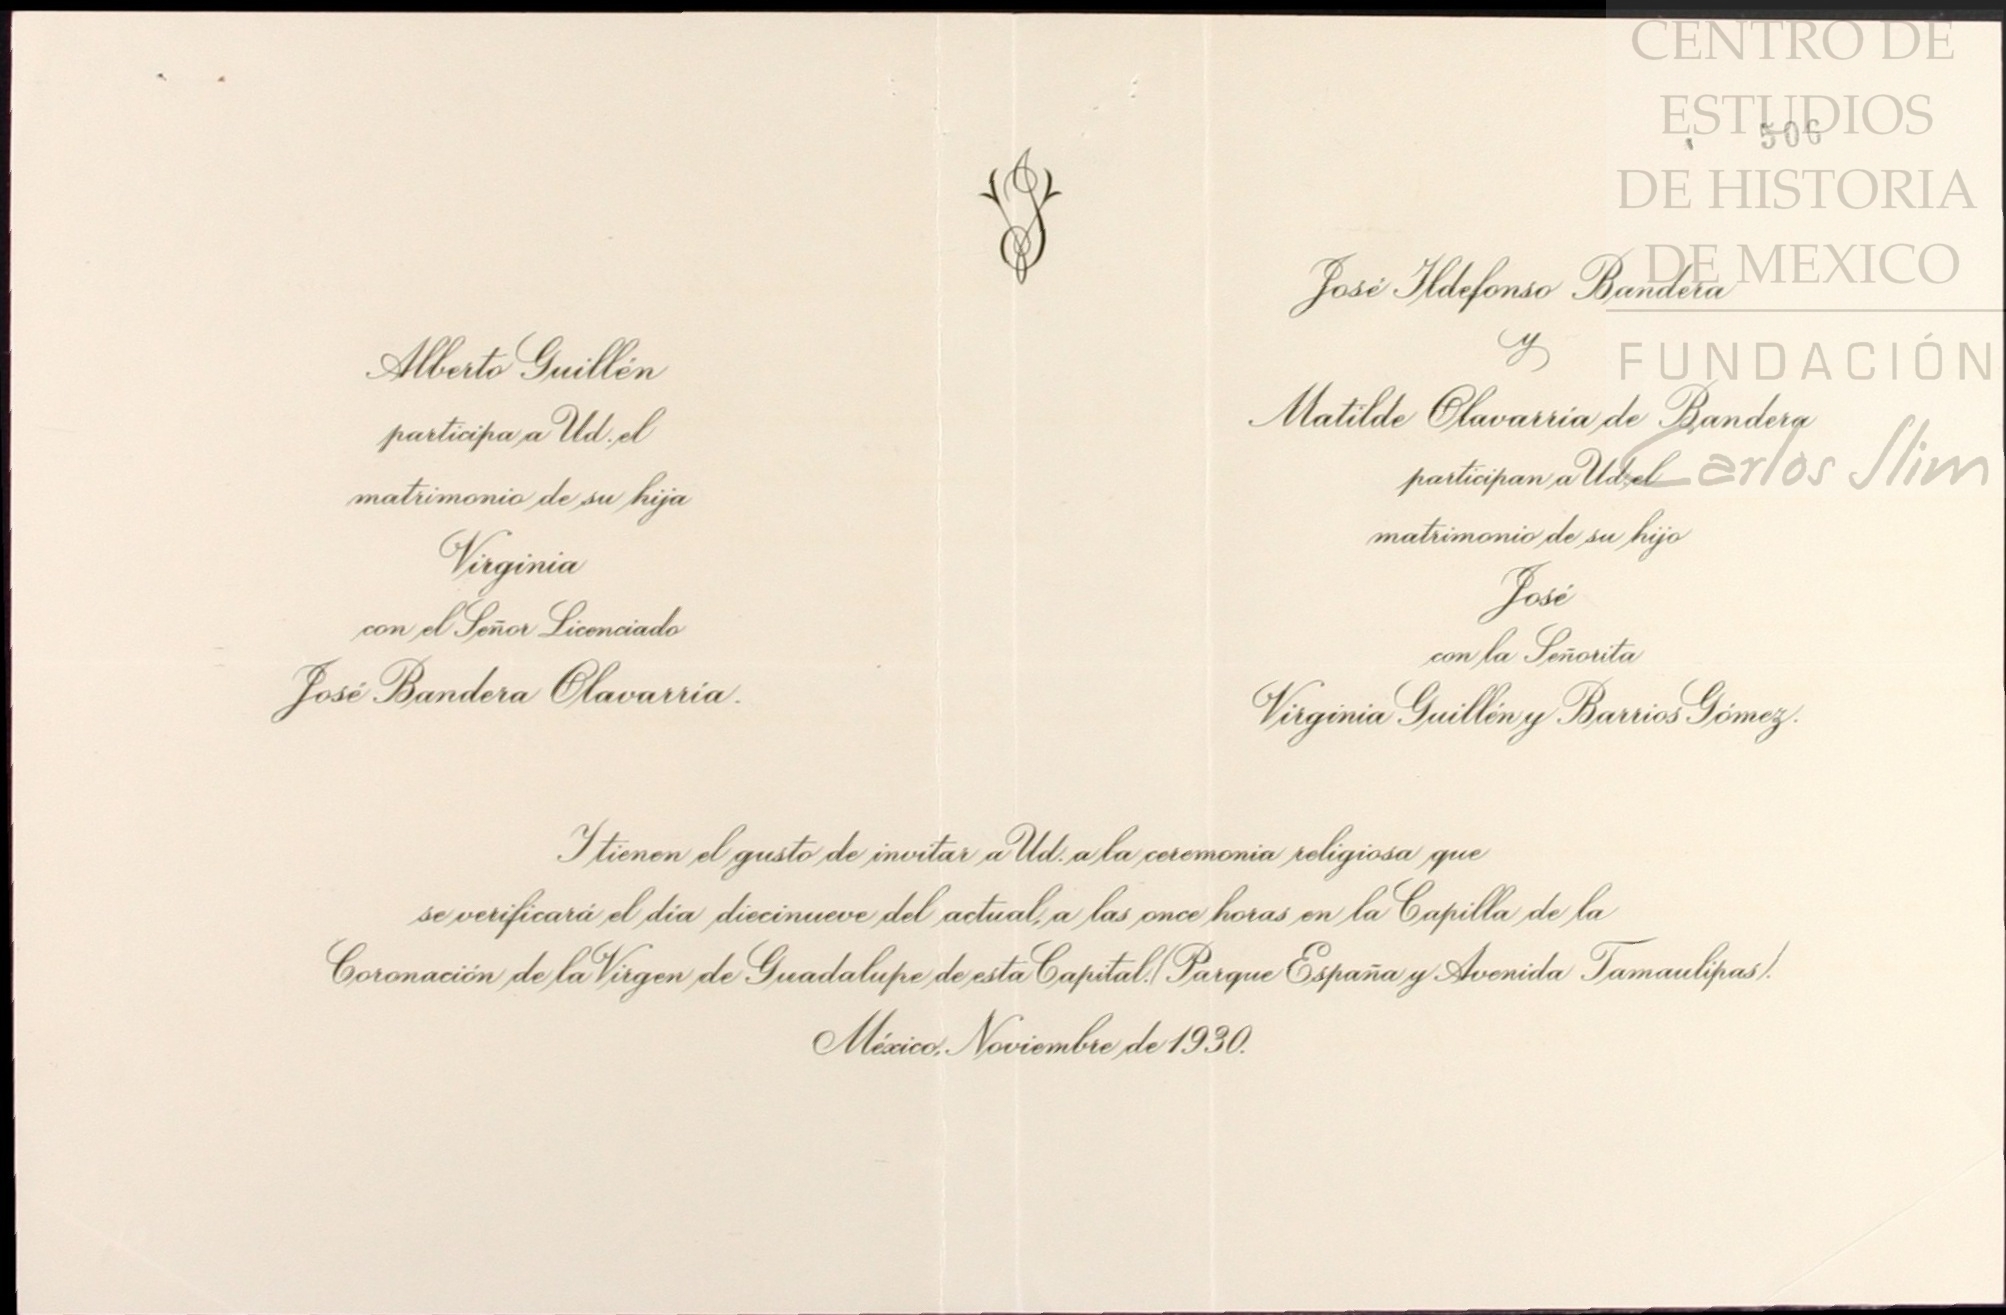 CENTRO DE
ESTUDIOS
506
DE HISTORIA
DE MEXICO
FUNDACIÓN
Carlos Slim
Alberto Guillén
participa a Ud. el
matrimonio de su hija
Virginia
con el Señor Licenciado
José Bandera Olavarría.
José Ildefonso Bandera
y
Matilde Olavarría de Bandera
participan a Ud. el
matrimonio de su hijo
José
con la Señorita
Virginia Guillén y Barrios Gómez.
Y tienen el gusto de invitar a Ud. a la ceremonia religiosa que
se verificará el día diecinueve del actual, a las once horas en la Capilla de la
Coronación de la Virgen de Guadalupe de esta Capital. (Parque España y Avenida Tamaulipas).
México, Noviembre de 1930.